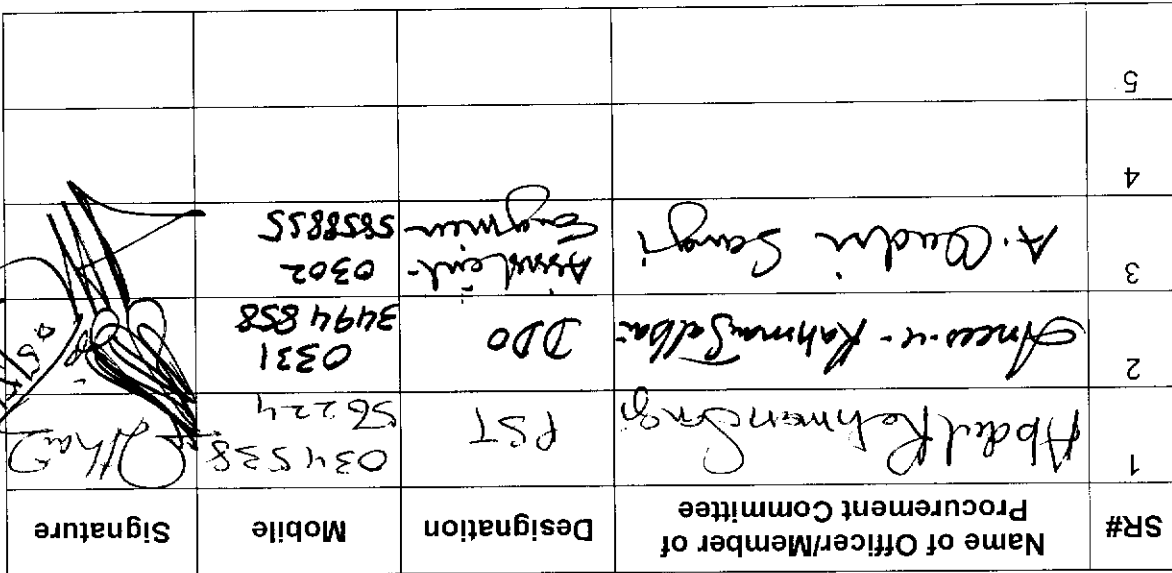 SR#
Name of Officer/Member of
Procurement Committee
Designation
Mobile
Signature
1
Abdul Rehman Sangi
PST
034538
56224
2
Anees-u-Rahman
DDO
0331
3494858
3
A. Qadir Sangi
Assistent
0302
5858855
4
5